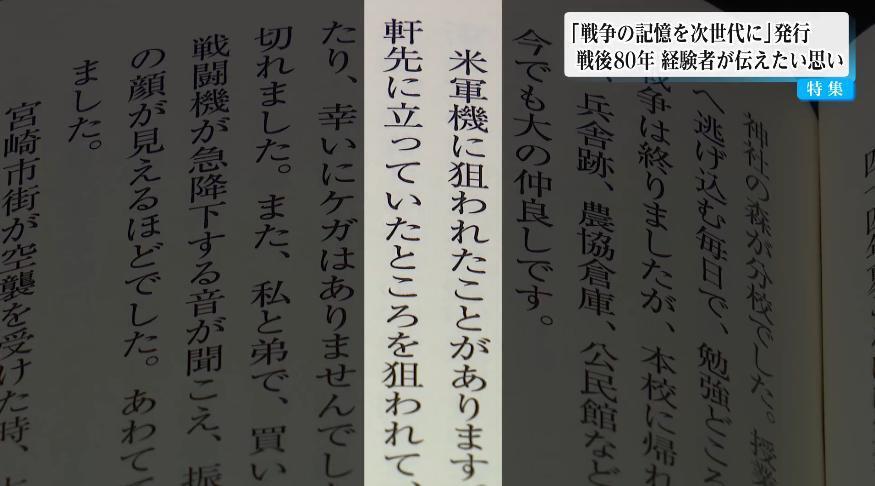 「戦争の記憶を次世代に」発行
戦後80年 経験者が伝えたい思い
特集
神社の森が分校でした。授業
へ逃げ込む毎日で、勉強どころ
戦争は終りましたが、本校に帰れ
、兵舎跡、農協倉庫、公民館など
今でも大の仲良しです。
米軍機に狙われたことがあります。
軒先に立っていたところを狙われて、
たり、幸いにケガはありませんでし
切れました。また、私と弟で、買い
戦闘機が急降下する音が聞こえ、振
の顔が見えるほどでした。あわてて
ました。
宮崎市街が空襲を受けた時、